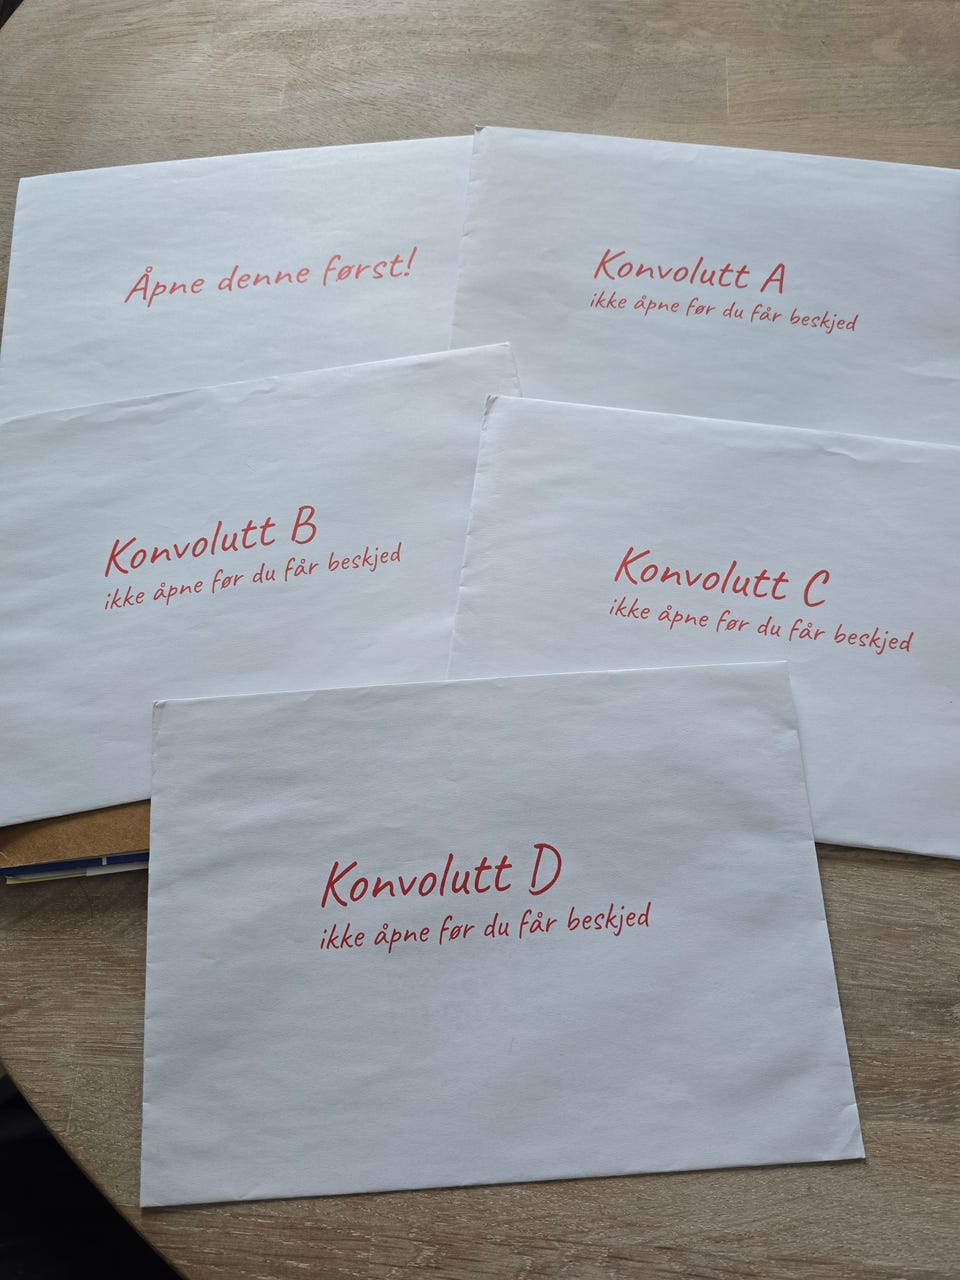 Åpne denne først!
Konvolutt A
ikke åpne før du får beskjed
Konvolutt B
ikke åpne før du får beskjed
Konvolutt C
ikke åpne før du får beskjed
Konvolutt D
ikke åpne før du får beskjed